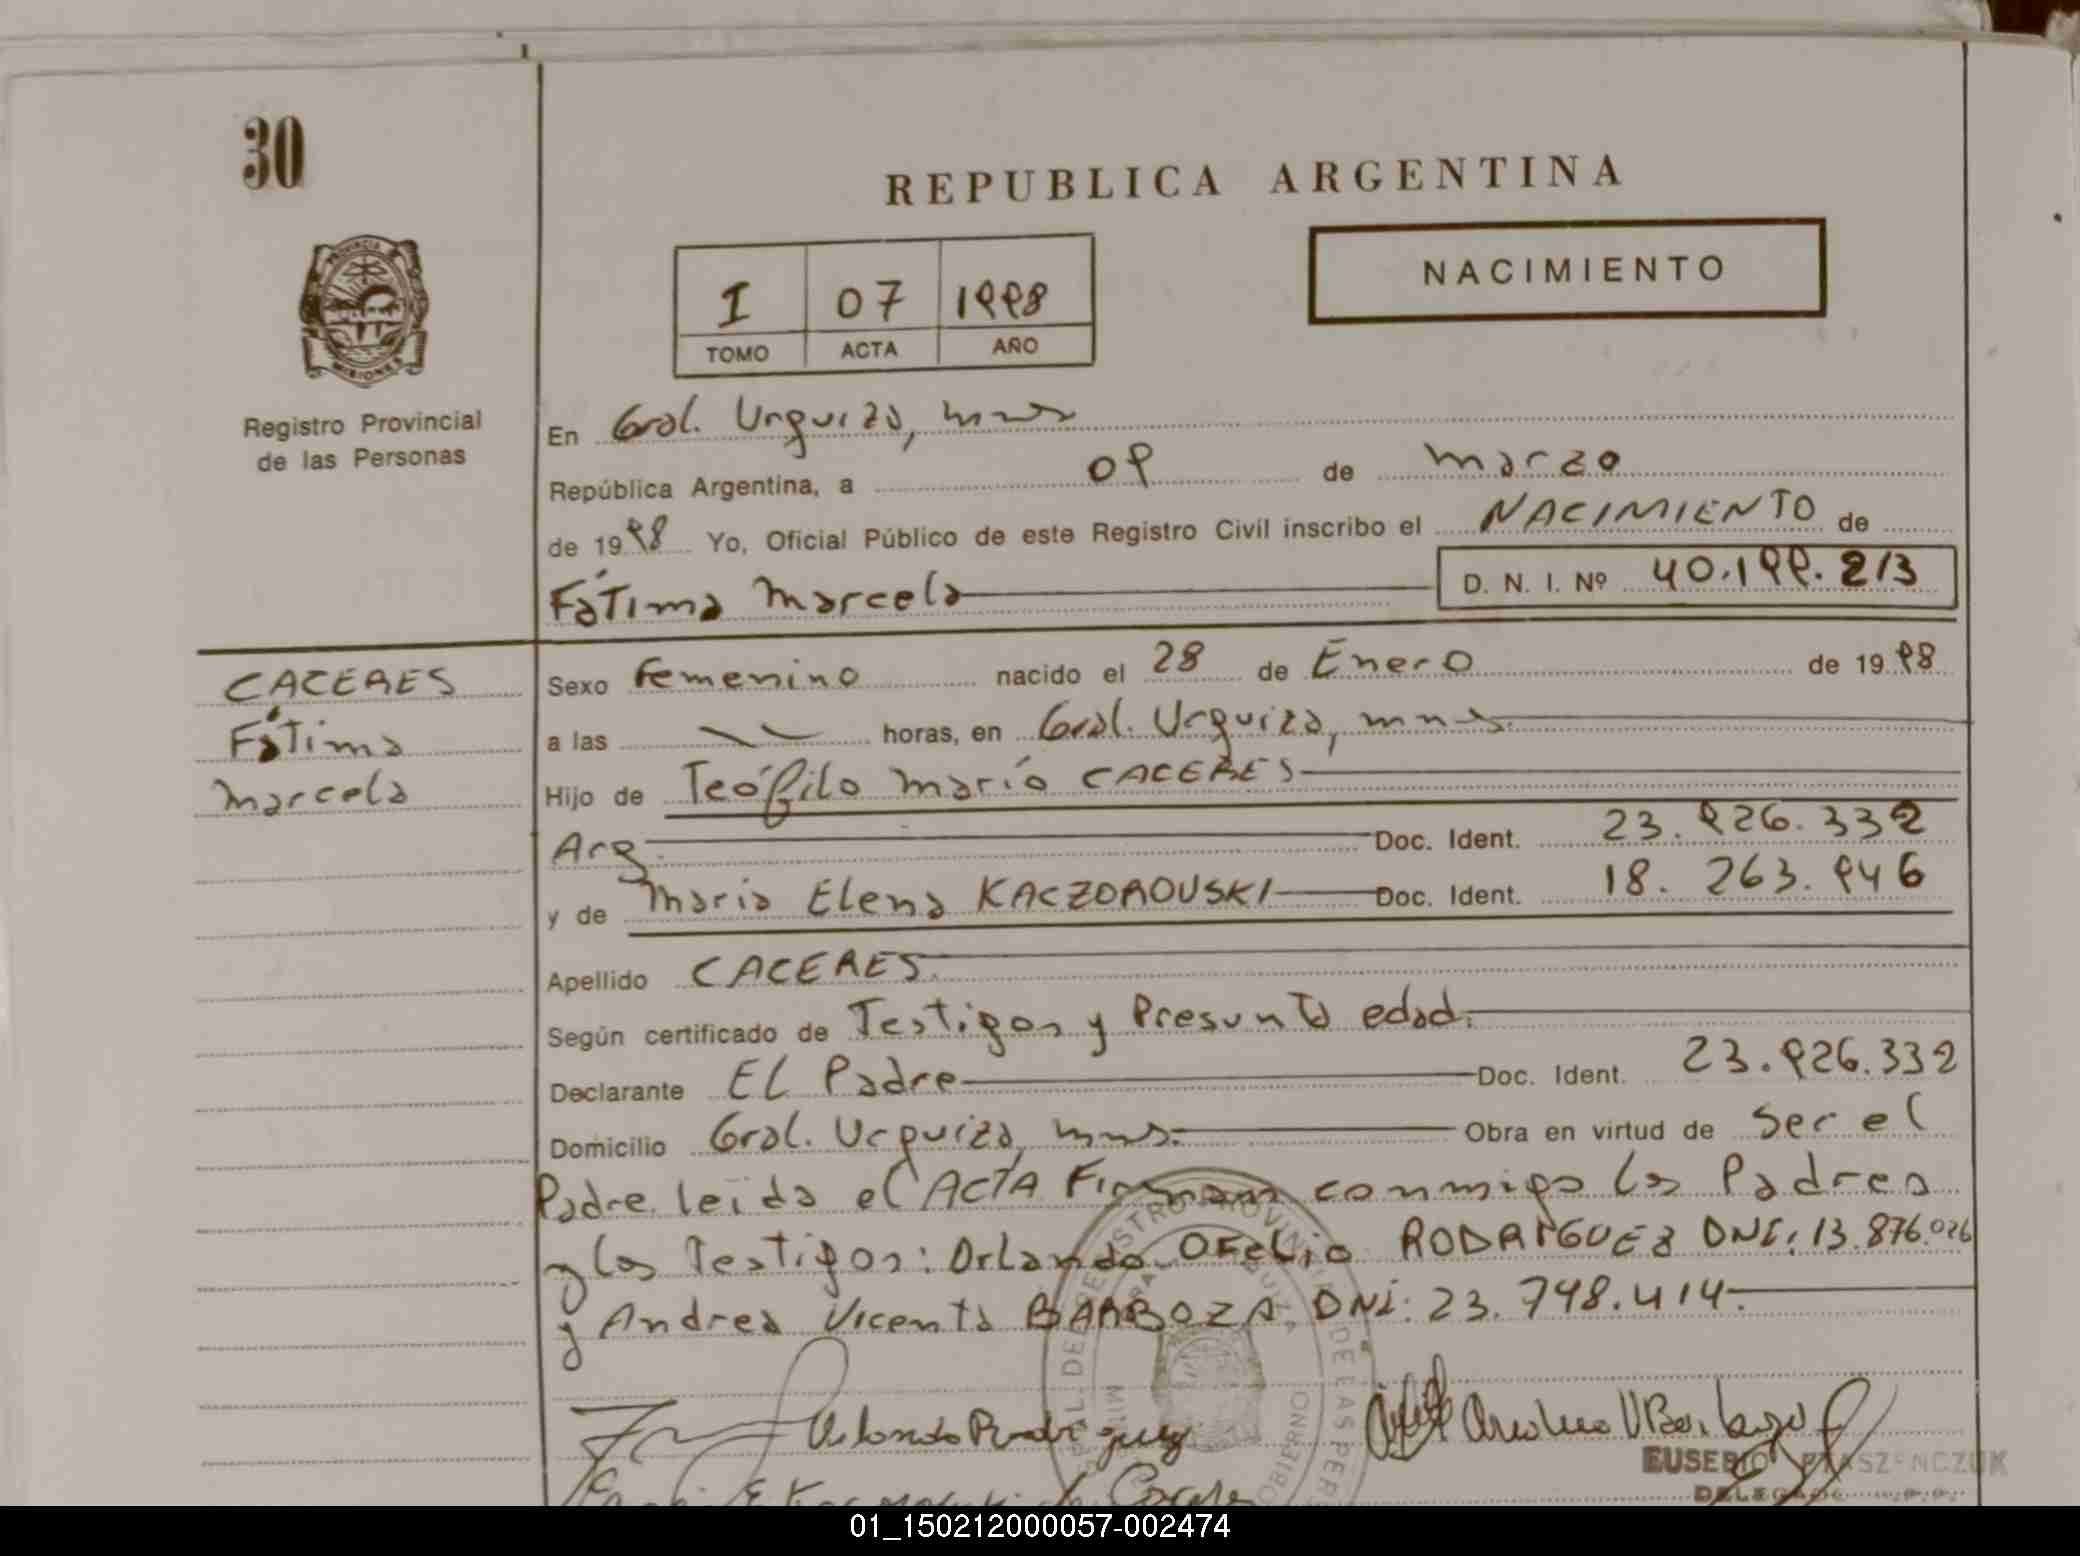 30
REPUBLICA ARGENTINA
NACIMIENTO
I 07 1998
TOMO ACTA AÑO
PROVINCIA DE
MISIONES
Registro Provincial
de las Personas
En Gral. Urquiza, mns
República Argentina, a 09 de marzo
de 1998 Yo, Oficial Público de este Registro Civil inscribo el NACIMIENTO de
Fátima Marcela D. N. I. Nº 40.199.213
CACERES
Fátima
Marcela
Sexo Femenino nacido el 28 de Enero de 1998
a las horas, en Gral. Urquiza, mns.
Hijo de Teófilo Mario CACERES
Arg. Doc. Ident. 23.926.332
y de Maria Elena KACZOROUSKI Doc. Ident. 18.263.946
Apellido CACERES.
Según certificado de Testigos y Presunta edad.
Declarante EL Padre Doc. Ident. 23.926.332
Domicilio Gral. Urquiza, mns. Obra en virtud de Ser el
Padre. leida el ACTA Firman conmigo los Padres
y los Testigos: Orlando OFelio RODRIGUEZ DNI: 13.876.026
y Andrea Vicenta BARBOZA DNI: 23.748.414.
Orlando Rodriguez
EUSEBIO
DELEGADO
01_150212000057-002474